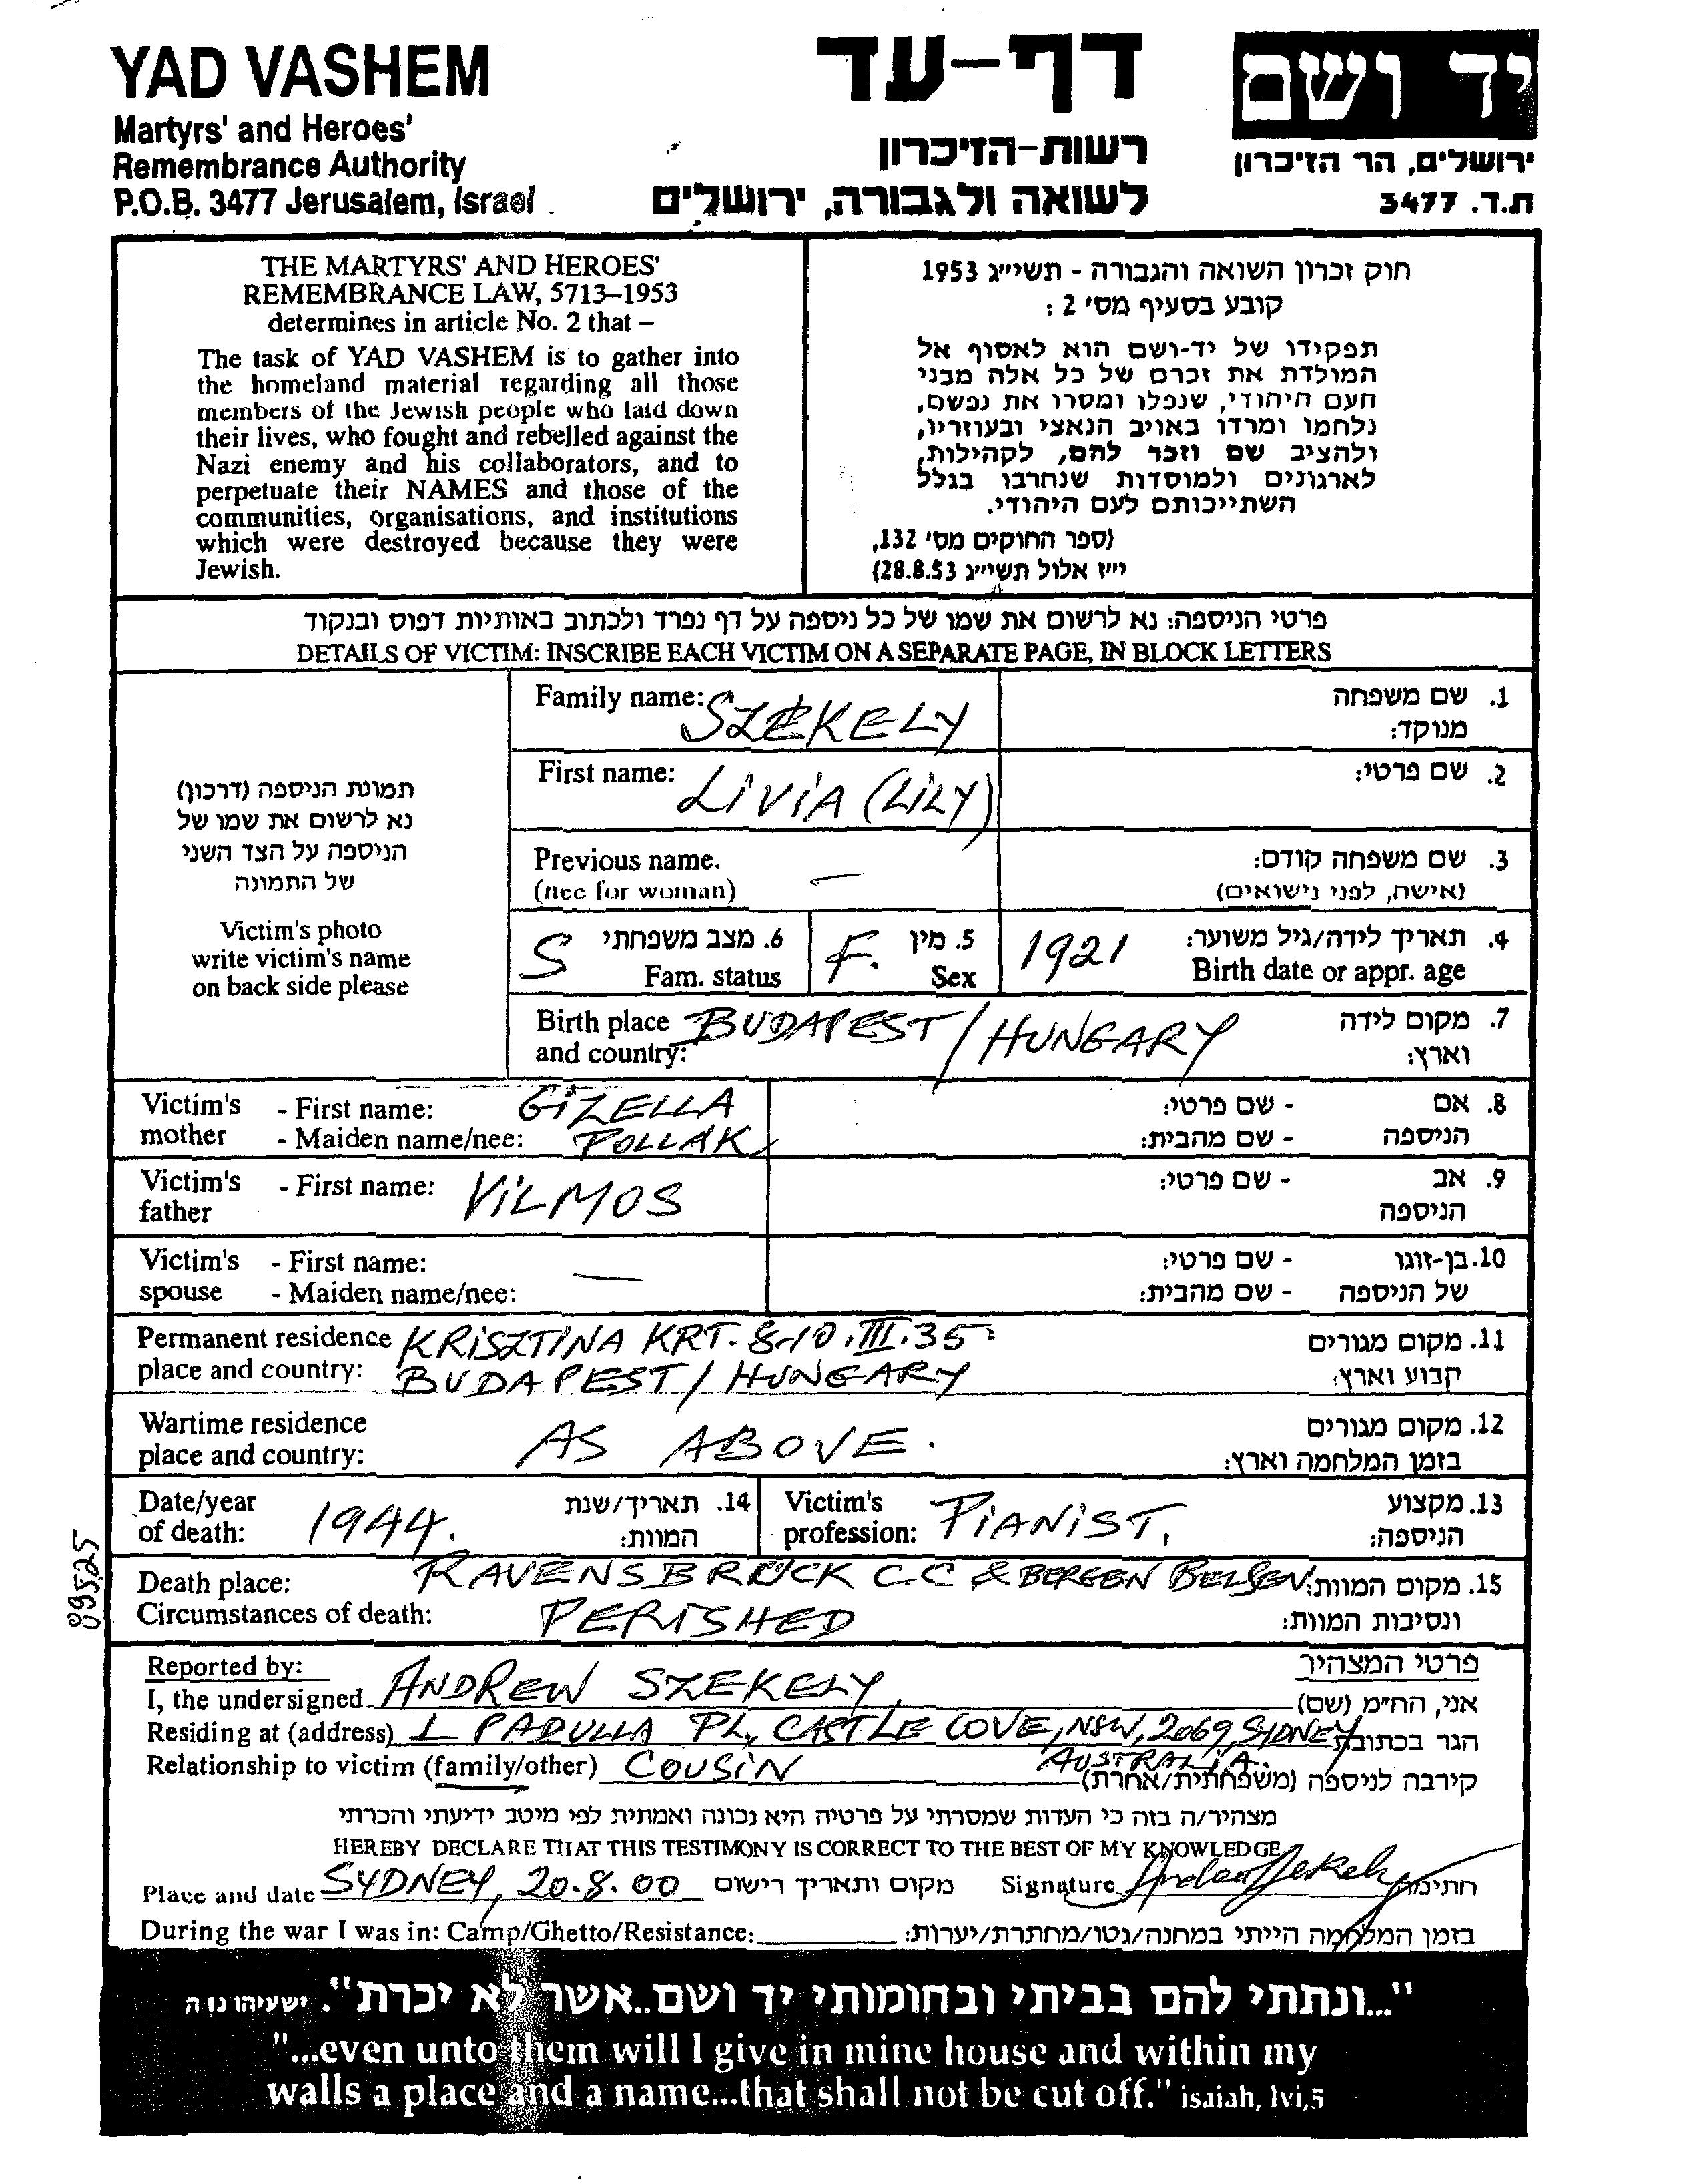 YAD VASHEM
Martyrs' and Heroes'
Remembrance Authority
P.O.B. 3477 Jerusalem, Israel
דף-עד
רשות-הזיכרון
לשואה ולגבורה, ירושלים
יד ושם
ירושלים, הר הזיכרון
ת.ד. 3477
THE MARTYRS' AND HEROES'
REMEMBRANCE LAW, 5713–1953
determines in article No. 2 that –
The task of YAD VASHEM is to gather into
the homeland material regarding all those
members of the Jewish people who laid down
their lives, who fought and rebelled against the
Nazi enemy and his collaborators, and to
perpetuate their NAMES and those of the
communities, organisations, and institutions
which were destroyed because they were
Jewish.
חוק זכרון השואה והגבורה - תשי״ג 1953
קובע בסעיף מס׳ 2 :
תפקידו של יד-ושם הוא לאסוף אל
המולדת את זכרם של כל אלה מבני
העם היהודי, שנפלו ומסרו את נפשם,
נלחמו ומרדו באויב הנאצי ובעוזריו,
ולהציב שם וזכר להם, לקהילות,
לארגונים ולמוסדות שנחרבו בגלל
השתייכותם לעם היהודי.
(ספר החוקים מס׳ 132,
י״ז אלול תשי״ג 28.8.53)
פרטי הניספה: נא לרשום את שמו של כל ניספה על דף נפרד ולכתוב באותיות דפוס ובנקוד
DETAILS OF VICTIM: INSCRIBE EACH VICTIM ON A SEPARATE PAGE, IN BLOCK LETTERS
תמונת הניספה (דרכון)
נא לרשום את שמו של
הניספה על הצד השני
של התמונה
Victim's photo
write victim's name
on back side please
Family name: SZEKELY 1. שם משפחה
מנוקד:
First name: LIVIA (LILY) 2. שם פרטי:
Previous name. — 3. שם משפחה קודם:
(nee for woman) (אישה, לפני נישואים)
S 6. מצב משפחתי F. 5. מין 1921 4. תאריך לידה/גיל משוער:
Fam. status Sex Birth date or appr. age
Birth place BUDAPEST / HUNGARY 7. מקום לידה
and country: וארץ:
Victim's - First name: GIZELLA - שם פרטי: 8. אם
mother - Maiden name/nee: POLLAK - שם מהבית: הניספה
Victim's - First name: VILMOS - שם פרטי: 9. אב
father הניספה
Victim's - First name: — - שם פרטי: 10. בן-זוגו
spouse - Maiden name/nee: - שם מהבית: של הניספה
Permanent residence KRISZTINA KRT. 8-10. III. 35 11. מקום מגורים
place and country: BUDAPEST / HUNGARY קבוע וארץ:
Wartime residence AS ABOVE. 12. מקום מגורים
place and country: בזמן המלחמה וארץ:
Date/year 1944. 14. תאריך/שנת Victim's PIANIST. 13. מקצוע
of death: המוות: profession: הניספה:
Death place: RAVENSBRÜCK C.C & BERGEN BELSEN 15. מקום המוות:
Circumstances of death: PERISHED ונסיבות המוות:
Reported by: פרטי המצהיר
I, the undersigned ANDREW SZEKELY, אני, הח״מ (שם)
Residing at (address) 1 PADULLA PL, CASTLE COVE, NSW, 2069, SYDNEY הגר בכתובת
AUSTRALIA.
Relationship to victim (family/other) COUSIN קירבה לניספה (משפחתית/אחרת)
מצהיר/ה בזה כי העדות שמסרתי על פרטיה היא נכונה ואמתית לפי מיטב ידיעתי והכרתי
HEREBY DECLARE THAT THIS TESTIMONY IS CORRECT TO THE BEST OF MY KNOWLEDGE
Place and date SYDNEY, 20.8.00 מקום ותאריך רישום Signature Andrew Szekely חתימה
During the war I was in: Camp/Ghetto/Resistance: בזמן המלחמה הייתי במחנה/גטו/מחתרת/יערות:
"...ונתתי להם בביתי ובחומותי יד ושם..אשר לא יכרת". ישעיהו נו ה
"...even unto them will I give in mine house and within my
walls a place and a name...that shall not be cut off." isaiah, lvi,5